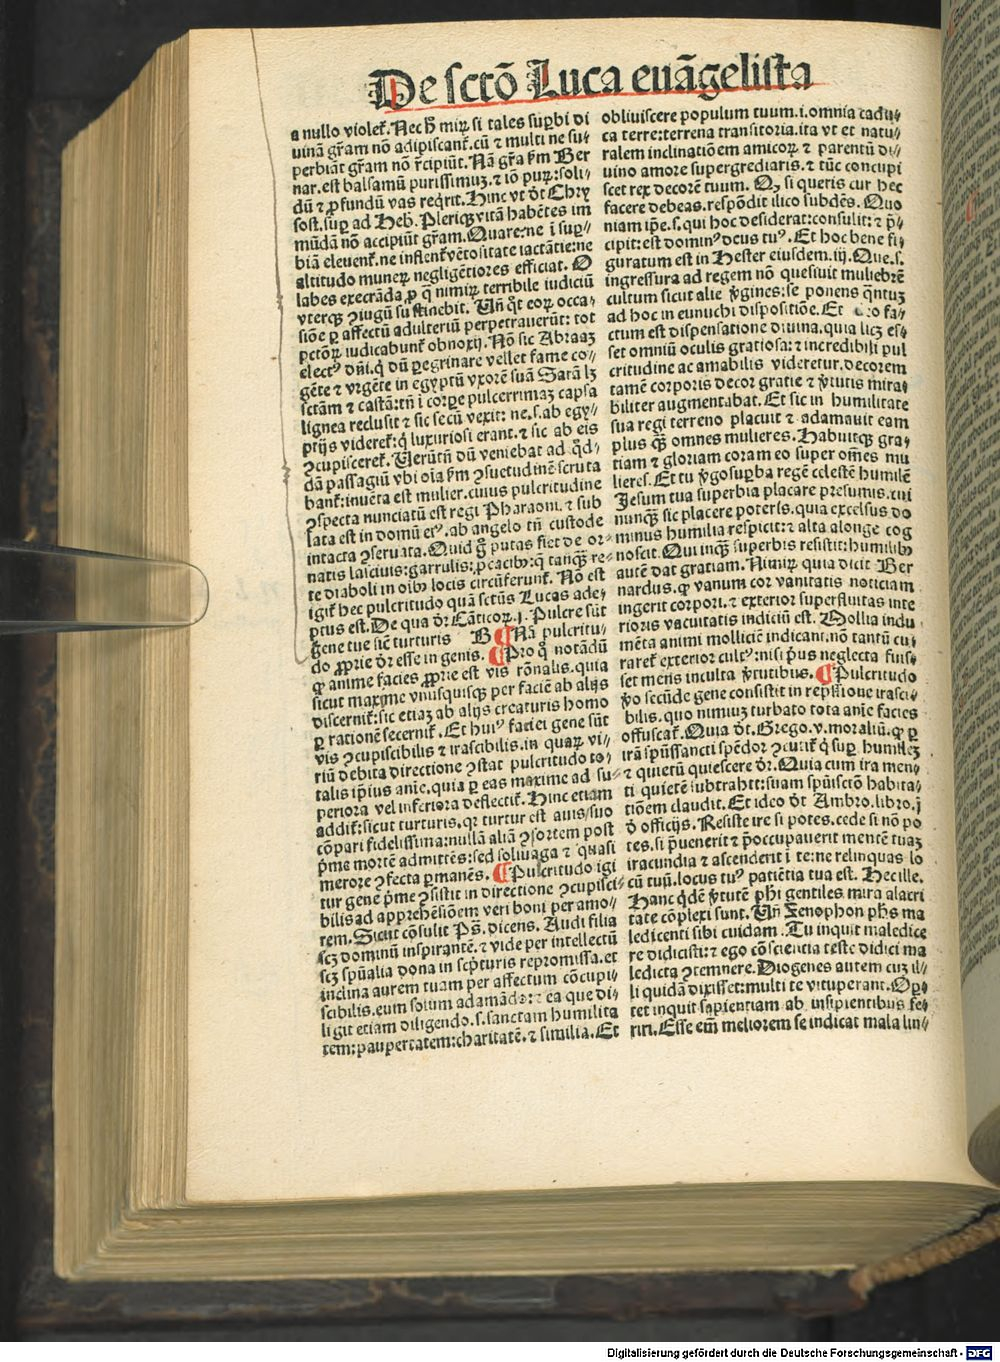 De sctō Luca euāgelista
a nullo violet̄. Nec h̄ mirꝝ si tales suꝑbi di
uinā gr̄am nō adipiscant̄. cū ⁊ multi ne su⸗
perbiāt gr̄am nō r̄cipiūt. Nā gr̄a ẜm Ber
nar. est balsamū purissimuꝫ. ⁊ iō purꝝ: soli⸗
dū ⁊ ꝓfundū vas req̇rit. Hinc vt dt̄ Chry
sost. suꝑ ad Heb. Pleriqꝫ vitā habētes im
mūdā nō accipiūt gr̄am. Quare: ne i suꝑ⸗
biā eleuent̄. ne inflent̄ vētositate iactātie: ne
altitudo munerꝝ negligētiores efficiat. O
labes execrāda ꝓ q̄ nimirꝝ terribile iudiciū
vterqꝫ ꝯiugū sustinebit. Un̄ q̇t eorꝝ occa⸗
siōe ꝑ affectū adulteriū perpetrauerūt: tot
pctōrꝝ iudicabunt̄ obnoxij. Nō sic Abraaꝫ
electꝰ dn̄i. q̇ dū ꝑegrinare vellet fame co⸗
gēte ⁊ vrgēte in egyptū vxorē suā Sarā lꝫ
sctām ⁊ castā: tn̄ i corꝑe pulcerrimaꝫ capsa
lignea reclusit ⁊ sic secū vexit: ne. s. ab egy⸗
ptijs videret̄: q̇ luxuriosi erant. ⁊ sic ab eis
ꝯcupisceret̄. Uerūtn̄ dū veniebat ad q̇d⸗
dā passagiū vbi oīa ẜm ꝯsuetudinē scruta
bant̄: inuēta est mulier. cuius pulcritudine
ꝯspecta nunciatū est regi Pharaoni. ⁊ sub
lata est in domū eiꝰ. ab angelo tn̄ custode
intacta ꝯseruata. Quid g̊ putas fiet de or⸗
natis lasciuis: garrulis: ꝓcacibꝰ: q̄ tanqꝫ re⸗
te diaboli in oībꝰ locis circūferunt̄. Nō est
igit̄ hec pulcritudo quā sctūs Lucas ade⸗
ptus est. De qua dr̄. Cāticorꝝ. j. Pulcre sūt
gene tue sic̄t turturis B ¶ Nā pulcritu⸗
do ꝓprie dr̄ esse in genis. ¶ Pro q̊ notādū
ꝙ anime facies ꝓprie est vis rōnalis. quia
sicut maxime vnusquisqꝫ per faciē ab alijs
discernit̄: sic etiaꝫ ab alijs creaturis homo
ꝑ rationē secernit̄. Et huiꝰ faciei gene sūt
vis ꝯcupiscibilis ⁊ irascibilis. in quarꝝ vi⸗
riū debita directione ꝯstat pulcritudo to⸗
talis ip̄ius anīe. quia ꝑ eas maxime ad su⸗
periora vel inferiora deflectit̄. Hinc etiam
addit̄: sicut turturis. qꝛ turtur est auis suo
cōpari fidelissima: nullā aliā ꝯsortem post
p̄me mortē admittēs: sed soliuaga ⁊ quasi
merore ꝯfecta ꝑmanēs. ¶ Pulcritudo igi
tur gene p̄me ꝯsistit in directione ꝯcupisci⸗
bilis ad apprehēsiōem veri boni per amo⸗
rem. Sicut cōsulit Ps̄. dicens. Audi filia
scꝫ dominū inspirantē. ⁊ vide per intellectū
scꝫ spūalia dona in scpturis repromissa. et
inclina aurem tuam per affectum cōcupi⸗
scibilis. eum solum adamādo: ⁊ ea que di⸗
ligit etiam diligendo. s. sanctam humilita
tem: paupertatem: charitatē. ⁊ similia. Et
obliuiscere populum tuum. i. omnia cadu⸗
ca terre: terrena transitoria. ita vt et natu⸗
ralem inclinatiōem amicorꝝ ⁊ parentū di⸗
uino amore supergrediaris. ⁊ tūc concupi
scet rex decorē tuum. Qꝫ si queris cur hec
facere debeas. respōdit ilico subdēs. Quo
niam ip̄e. s. qui hoc desiderat: consulit: ⁊ p̄⸗
cipit: est dominꝰ deus tuꝰ. Et hoc bene fi⸗
guratum est in Hester eiusdem. ij. Que. s.
ingressura ad regem nō quesiuit muliebrē
cultum sicut alie v̄gines: se ponens q̄ntuꝫ
ad hoc in eunuchi dispositiōe. Et fa⸗
ctum est dispensatione diuina. quia licꝫ es⸗
set omniū oculis gratiosa: ⁊ incredibili pul
critudine ac amabilis videretur. decorem
tamē corporis decor gratie ⁊ v̄tutis mira⸗
biliter augmentabat. Et sic in humilitate
sua regi terreno placuit ⁊ adamauit eam
plus qꝫ omnes mulieres. Habuitqꝫ gra⸗
tiam ⁊ gloriam coram eo super om̄es mu
lieres. Et tu v̄go suꝑba regē celestē humilē
Jesum tua superbia placare presumis. cui
nunqꝫ sic placere poteris. quia excelsus do
minus humilia respicit: ⁊ alta alonge cog
noscit. Qui inqꝫ superbis resistit: humilibꝰ
autē dat gratiam. Nimirꝝ quia dicit Ber
nardus. ꝙ vanum cor vanitatis noticiam
ingerit corpori. ⁊ exterior superfluitas inte
rioris vacuitatis indiciū est. Mollia indu
mēta animi molliciē indicant. nō tantū cu⸗
raret̄ exterior cultꝰ: nisi pꝰus neglecta fuis⸗
set mens inculta v̄tutibus. ¶ Pulcritudo
v̊o secūde gene consistit in rep̄ssione irasci⸗
bilis. quo nimiuꝫ turbato tota anīe facies
offuscat̄. Quia dt̄. Grego. v. moraliū. ꝙ ꝑ
irā spūssancti spēdor ꝯcutit̄ q̇ suꝑ humileꝫ
⁊ quietū quiescere dr̄. Quia cum ira men⸗
ti quietē subtrahit: suam spūisctō habita⸗
tiōem claudit. Et ideo dt̄ Ambro. libro. j
d̄ officijs. Resiste ire si potes. cede si nō po
tes. si p̄uenerit ⁊ p̄occupauerit mentē tuaꝫ
iracundia ⁊ ascenderit i te: ne relinquas lo
cū tuū. locus tuꝰ patiētia tua est. Hec ille.
Hanc q̇dē v̄tutē phi gentiles mira alacri
tate cōplexi sunt. Un̄ Xenophon phs ma
ledicenti sibi cuidam. Tu inquit maledice
re didicisti: ⁊ ego cōscientia teste didici ma
ledicta ꝯtemnere. Diogenes autem cuꝫ il⸗
li quidā dixisset: multi te vituperant. Opꝫ
tet inquit sapientiam ab insipientibus fe⸗
riri. Esse em̄ meliorem se indicat mala lin⸗
Digitalisierung gefördert durch die Deutsche Forschungsgemeinschaft - DFG